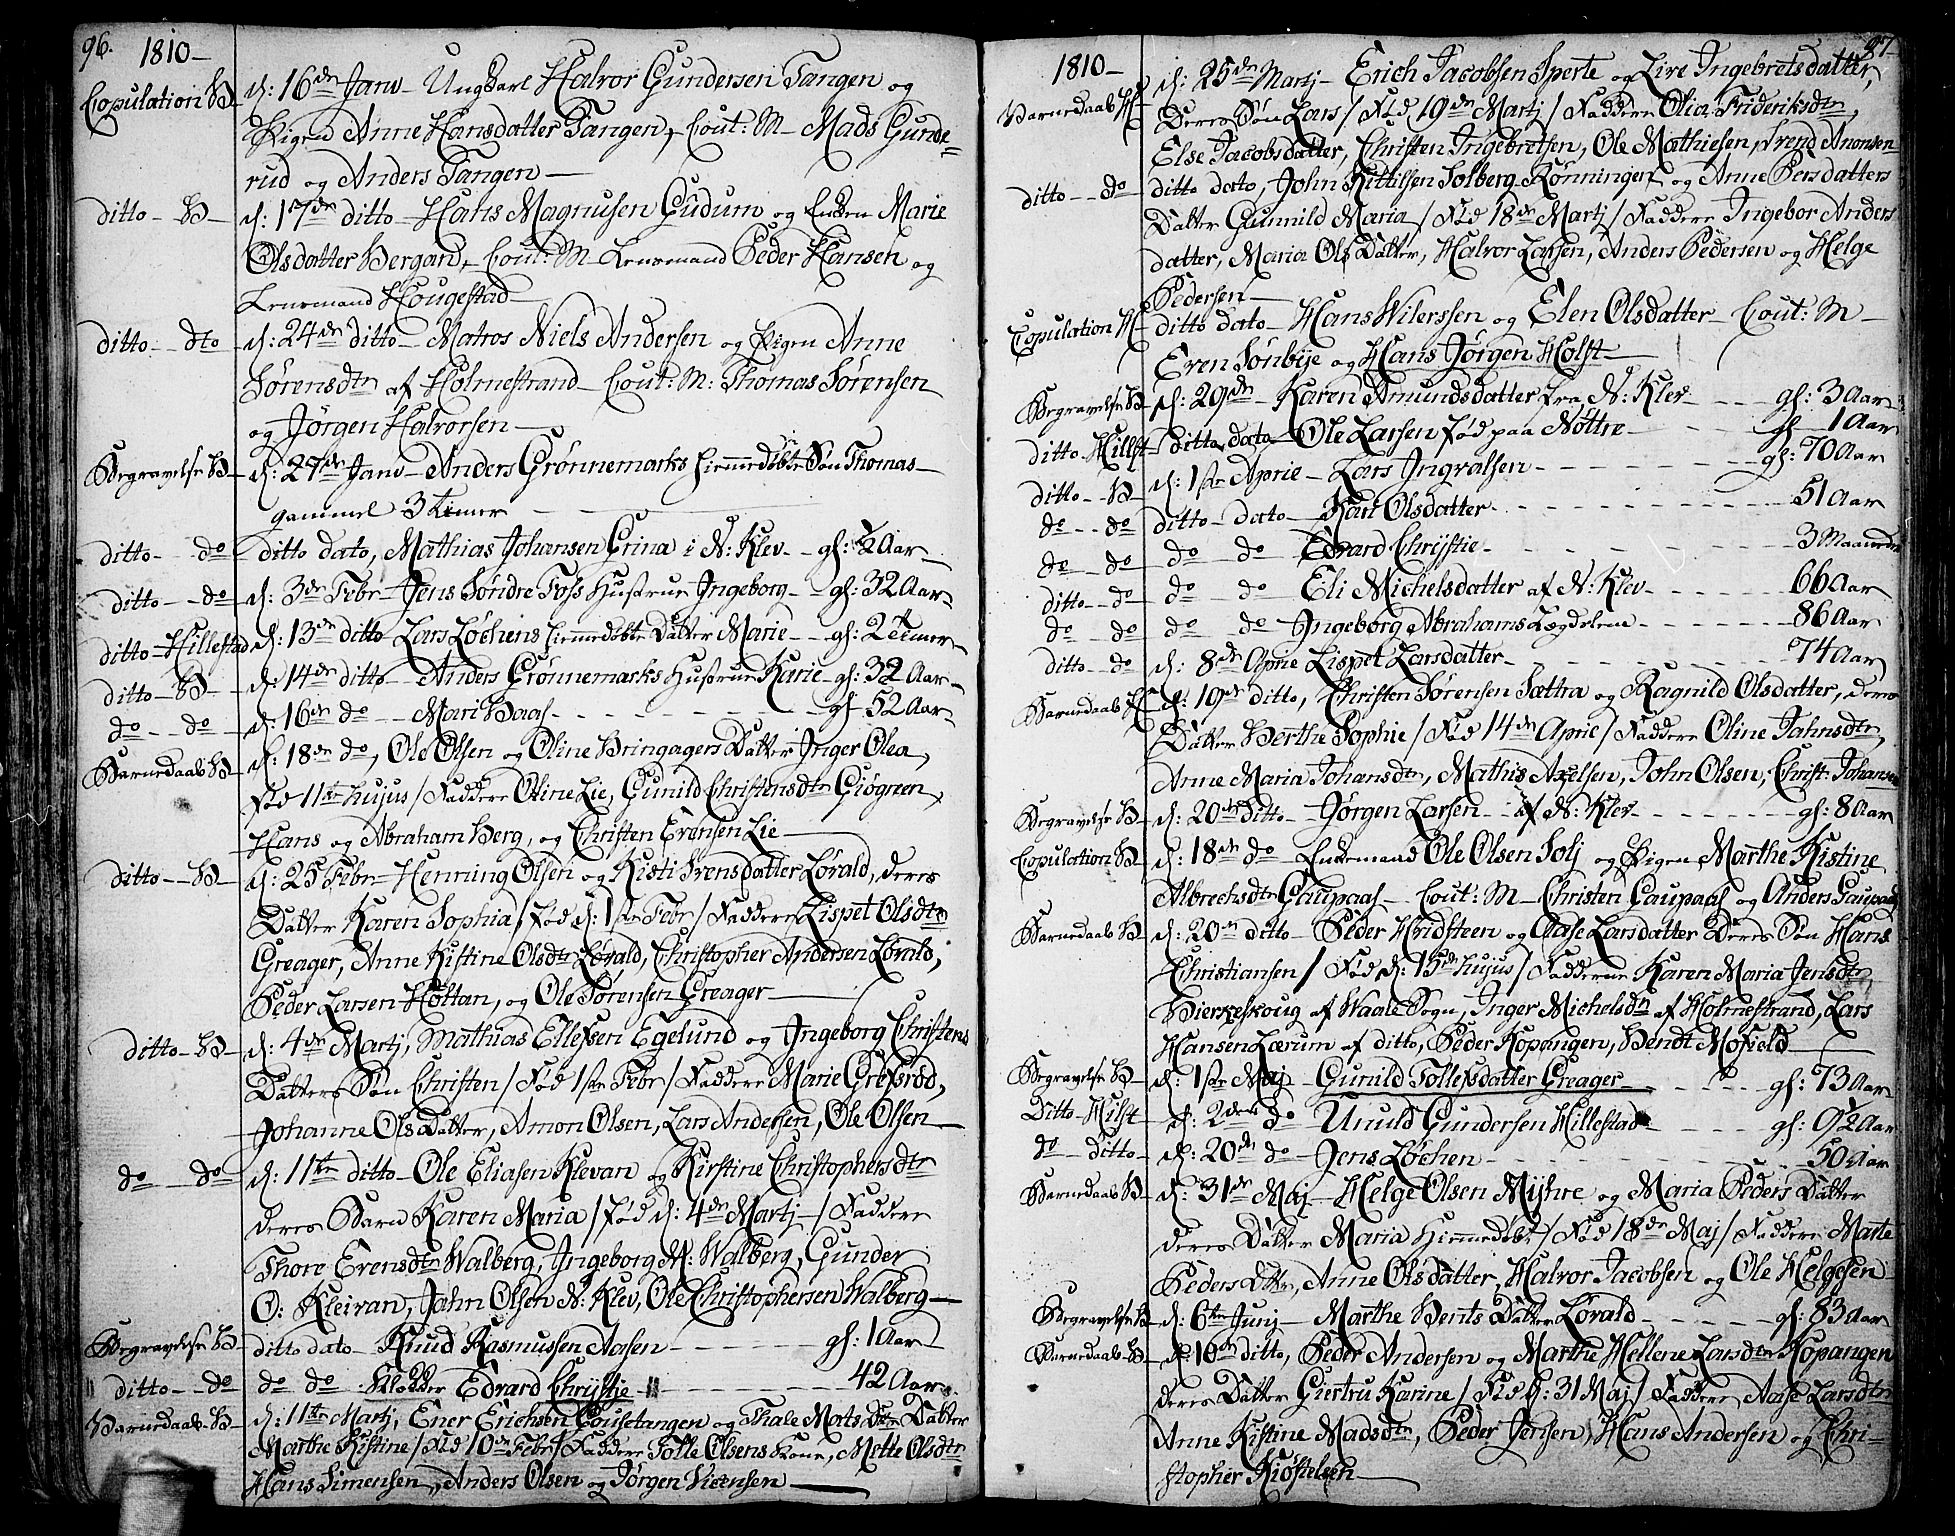 96. 1810-
Copulation H- d: 16de Janv- Ungkarl Halvor Gundersen Tangen og
Pigen Anne Hansdatter Tangen, Cout: M- Mads Gunde-
rud og Anders Tangen-
ditto- H- d: 17de ditto- Hans Magnusen Gudum og Enken Marie
Olsdatter Bergard, Cout: M- Lensmand Peder Hansen og
Lensmand Hougestad-
ditto- dto d: 24de ditto- Matros Niels Andersen og Pigen Anne
Sørensdtr af Holmestrand- Cout: M: Thomas Sørensen
og Jørgen Halvorsen-
Begravelse H- d: 27de Janv- Anders Grønnemarks hiemmedøbte Søn Thomas-
gammel 3 Timer
ditto- do ditto dato, Mathias Johansen Grina i N: Klev- gl: ½ Aar-
ditto- do d: 3de Febr- Jens Søndre Foss Hustrue Ingeborg- gl: 32 Aar-
ditto- Hillestad d: 13de ditto Lars Løchens hiemmedøbte Datter Marie- gl: 2 Timer-
ditto- H- d: 14de ditto- Anders Grønnemarks Hustrue Karie- gl: 32 Aar-
do- do d: 16de do- Mari Haas- gl- 52 Aar-
Barnedaab H- d: 18de do, Ole Olsen og Oline Bringagers Datter Inger Olea,
Fød 11te hujus/ Faddere Oline Lie, Gunild Christensdtr Giøgreen,
Hans og Abraham Berg, og Christen Evensen Lie-
ditto- H- d: 25 Febr- Henning Olsen og Kisti Svensdatter Løvald, deres
Datter Karen Sophia/ fød d: 1ste Febr/ Faddere Lispet Olsdtr
Greager, Anne Kistine Olsdtr Løvald, Christopher Andersen Løvald,
Peder Larsen Holtan, og Ole Sørensen Greager-
ditto- H- d: 4de Martj, Mathias Ellefsen Egelund og Ingeborg Christens
Datters Søn Christen/ Fød 1ste Febr/ Faddere Marie Grefsrød,
Johanne Ols Datter, Amon Olsen, Lars Andersen, Ole Olsen-
do- do d: 11te ditto- Ole Eliasen Klevan og Kirstine Christophersdtr
deres Barn Karen Maria/ fød d: 4de Martj-/ Faddere
Thore Evensdtr Walberg, Ingeborg N: Walberg, Gunder
O: Kleivan, Jahn Olsen N: Klev, Ole Christophersen Walberg-
Begravelse H- ditto dato- Knud Rasmussen Aasen- gl: 1 Aar
ditto- do do do- Klokker Edvard Chrystie- 42 Aar
Barnedaab H- d: 11te Martj, Ener Erichsen Cousetangen og Thale Mortsdtr Datter
Marthe Kistine/ Fød 10de Febr/ Faddere Tolle Olsens Kone, Mette Olsdtr
Hans Simensen, Anders Olsen og Jørgen Vicensen-
97
1810-
Barnedaab H- d: 25de Martj- Erich Jacobsen Sperte og Live Ingebretsdatter,
Deres Søn Lars/ Fød 19de Martj/ Faddere Olia Frideriksdtr,
Else Jacobsdatter, Christen Ingebretsen, Ole Mathiesen, Svend Anonsen
ditto- do ditto dato, John Kittilsen Solberg Rønningen og Anne Persdatters
Datter Gunnild Maria/ Fød 18de Martj/ Faddere Ingebor Anders
datter, Maria Ols Datter, Halvor Larsen, Anders Pedersen og Helge
Pedersen-
Copulation H- ditto dato- Hans Wilerssen og Elen Olsdatter- Cout: M-
Even Sønbye og Hans Jørgen Holst-
Begravelse H- d: 29de- Karen Amundsdatter fra N: Klev- gl: 3 Aar
ditto- Hillst- ditto dato- Ole Larsen fød paa Nøttre- gl- 1 Aar
ditto- H- d: 1ste Aprie- Lars Ingvalsen- gl: 70 Aar
do- do ditto- dato- Kari Olsdatter- 51 Aar
do- do do do Edvard Chrystie- 3 Maaneder
ditto- do do do Eli Michelsdatter af N: Klev- 66 Aar
do- do do do Ingeborg Abrahams Lægdelem- 86 Aar
ditto- do d: 8de Aprie Lispet Larsdatter- 74 Aar
Barnedaab H- d: 19de ditto, Christen Sørensen Sættra og Ragnild Olsdatter, deres
Datter Berthe Sophie/ Fød 14de Aprie/ Faddere Oline Jahnsdtr,
Anne Maria Johansdtr, Mathis Axelsen, John Olsen, Christ: Johansen
Begravelse H- d: 20de ditto- Jørgen Larsen- af N: Klev- gl: 8 Aar
Copulation H- d: 18de do- Enkemand Ole Olsen Solj og Pigen Marthe Kistine
Albrechsdtr Gaupaas- Cout: M- Christen Gaupaas og Anders Gaupaas
Barnedaab H- d: 20de ditto- Peder Hvidsteen og Aase Larsdatter Deres Søn Hans
Christiansen/ Fød d: 15de hujus/ Fadderne Karen Maria Jensdtr
Bierkeskoug af Waale Sogn, Inger Michelsdtr af Holmestrand, Lars
Hansen Lærum af ditto, Peder Kopangen, Bendt Mofield-
Begravelse H- d: 1ste Maj- Gunild Tollefsdatter Greager- gl: 73 Aar
Ditto- Hilst d: 2den do Unuld Gundersen Hillestad- gl: 92 Aar
do- ditto- d: 20de do Jens Løchen- 50 Aar
Barnedaab H- d: 31de Maj- Helge Olsen Myhre og Maria Peders Datter
deres Datter Maria hiemmedøbt/ Fød 18de Maj/ Faddere Marte
Peders Dtr, Anne Olsdatter, Halvor Jacobsen og Ole Helgesen
Begravelse H- d: 6te Junj- Marthe Bents Datter Løvald- gl: 83 Aar
Barnedaab H- d: 10de ditto, Peder Andersen og Marthe Hellene Larsdtr Kopangen
deres Datter Giertru Karine/ Fød d: 31 Maj/ Faddere Aase Larsdtr
Anne Kistine Madsdtr, Peder Jensen, Hans Andersen og Chri-
stopher Kiøstelsen-